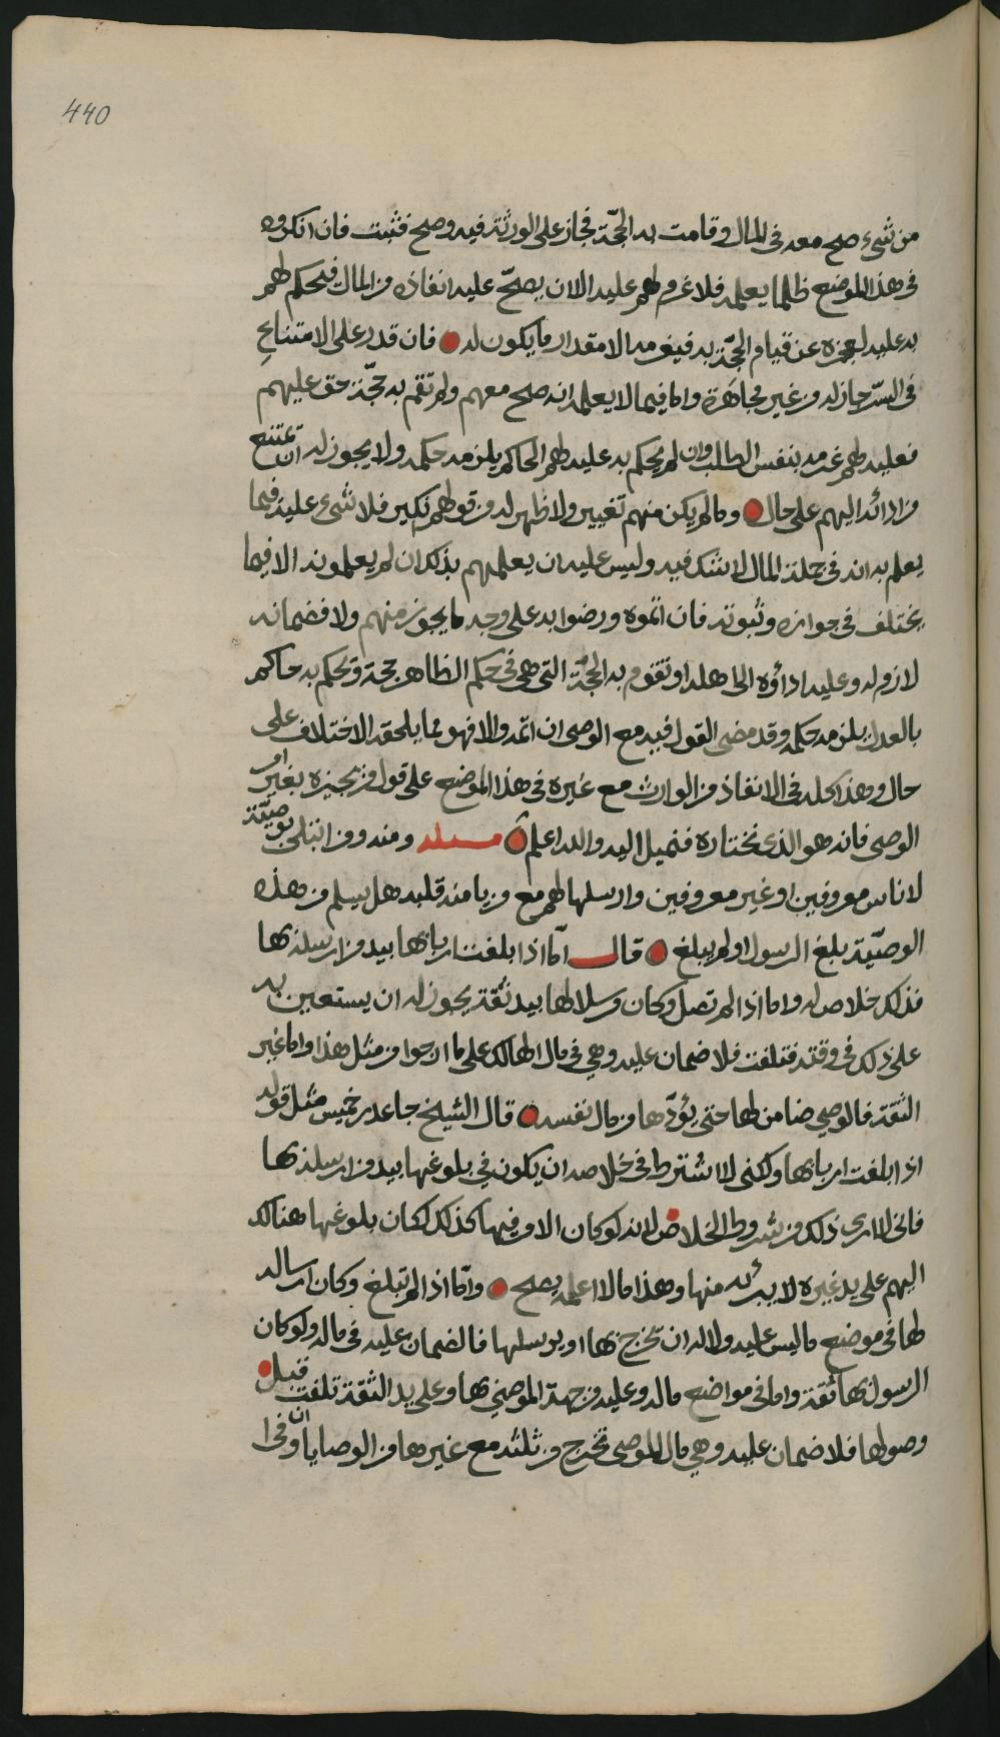 440
من شيء صح معه في المال وقامت به الحجّة فجاز على الورثة فيه وصح فثبت فان انكروه
في هذا الموضع ظلما يعلمه فلا غرم لهم عليه الا ان يصحّ عليه انفاذه من المال فيحكم لهم
به عليه لعجزه عن قيام الحجّة به فيغرمه الا مقدار ما يكون له فان قدر على الامتناع
في السّر جاز له من غير مجاهرة واما فيما لا يعلمه انه صح معهم ولم تقم به حجّة حق عليهم
فعليه لهم غرمه بنفس الطلب وان لم يحكم به عليه لهم الحاكم يلزمه حكمه ولا يجوز له ان يمتنع
من ادائه اليهم على حال وما لم يكن منهم تغيير ولا ظهر له من قولهم نكير فلا شيء عليه فيما
يعلم به انه في جملة المال لا شك فيه وليس عليه ان يعلمهم بذلك ان لم يعلموه الا فيما
يختلف في جوازه وثبوته فان اتموه ورضوا به على وجه ما يجوز منهم والا فضمانه
لازم له وعليه اداؤه الى اهله او تقوم به الحجّة التي هي في حكم الظاهر حجة ويحكم به حاكم
بالعدل يلزمه حكمه وقد مضى القول فيه مع الوصي ان اتمه والا فهو مما يلحقه الاختلاف على
حال وهذا كله في الانفاذ من الوارث مع غيره في هذا الموضع على قول من يجيزه بغير امر
الوصي فانه هو الذي نختاره فنميل اليه والله اعلم مسئلة ومنه ومن ابتلى بوصيّة
لاناس معروفين او غير معروفين وارسلها لهم مع من يامنه قلبه هل يسلم من هذه
الوصيّة بلغ الرسول او لم يبلغ قال امّا اذا بلغت اربابها بيد من ارسلة بها
فذلك خلاص له واما اذا لم تصل وكان مرسلا لها بيد ثقة يجوز له ان يستعين به
على ذلك في وقته فتلفت فلا ضمان عليه وهي في مال الهالك على ما ارجوا من مثل هذا واما غير
الثقة فالوصي ضامن لها حتى يؤدّها من مال نفسه قال الشيخ جاعد بن خميس مثل قوله
اذا بلغت اربابها ولكني لا اشترط في خلاصه ان يكون في بلوغها بيد من ارسلة بها
فاني لا ارى ذلك من شروط الخلاص لانه لو كان الامر فيها كذلك لكان بلوغها هنالك
اليهم على يد غيره لا يبرئه منها وهذا ما لا اعلمه يصح وامّا اذا لم تبلغ وكان ارساله
لها في موضع ما ليس عليه ولا له ان تخرج بها او يرسلها فالضمان عليه في ماله ولو كان
الرسول بها ثقة واما في مواضع ماله وعليه من جهة الموصي بها وعلى يد الثقة تلفت قبل
وصولها فلا ضمان عليه وهي مال الموصي تخرج من ثلثه مع غيرها من الوصايا ان وفى